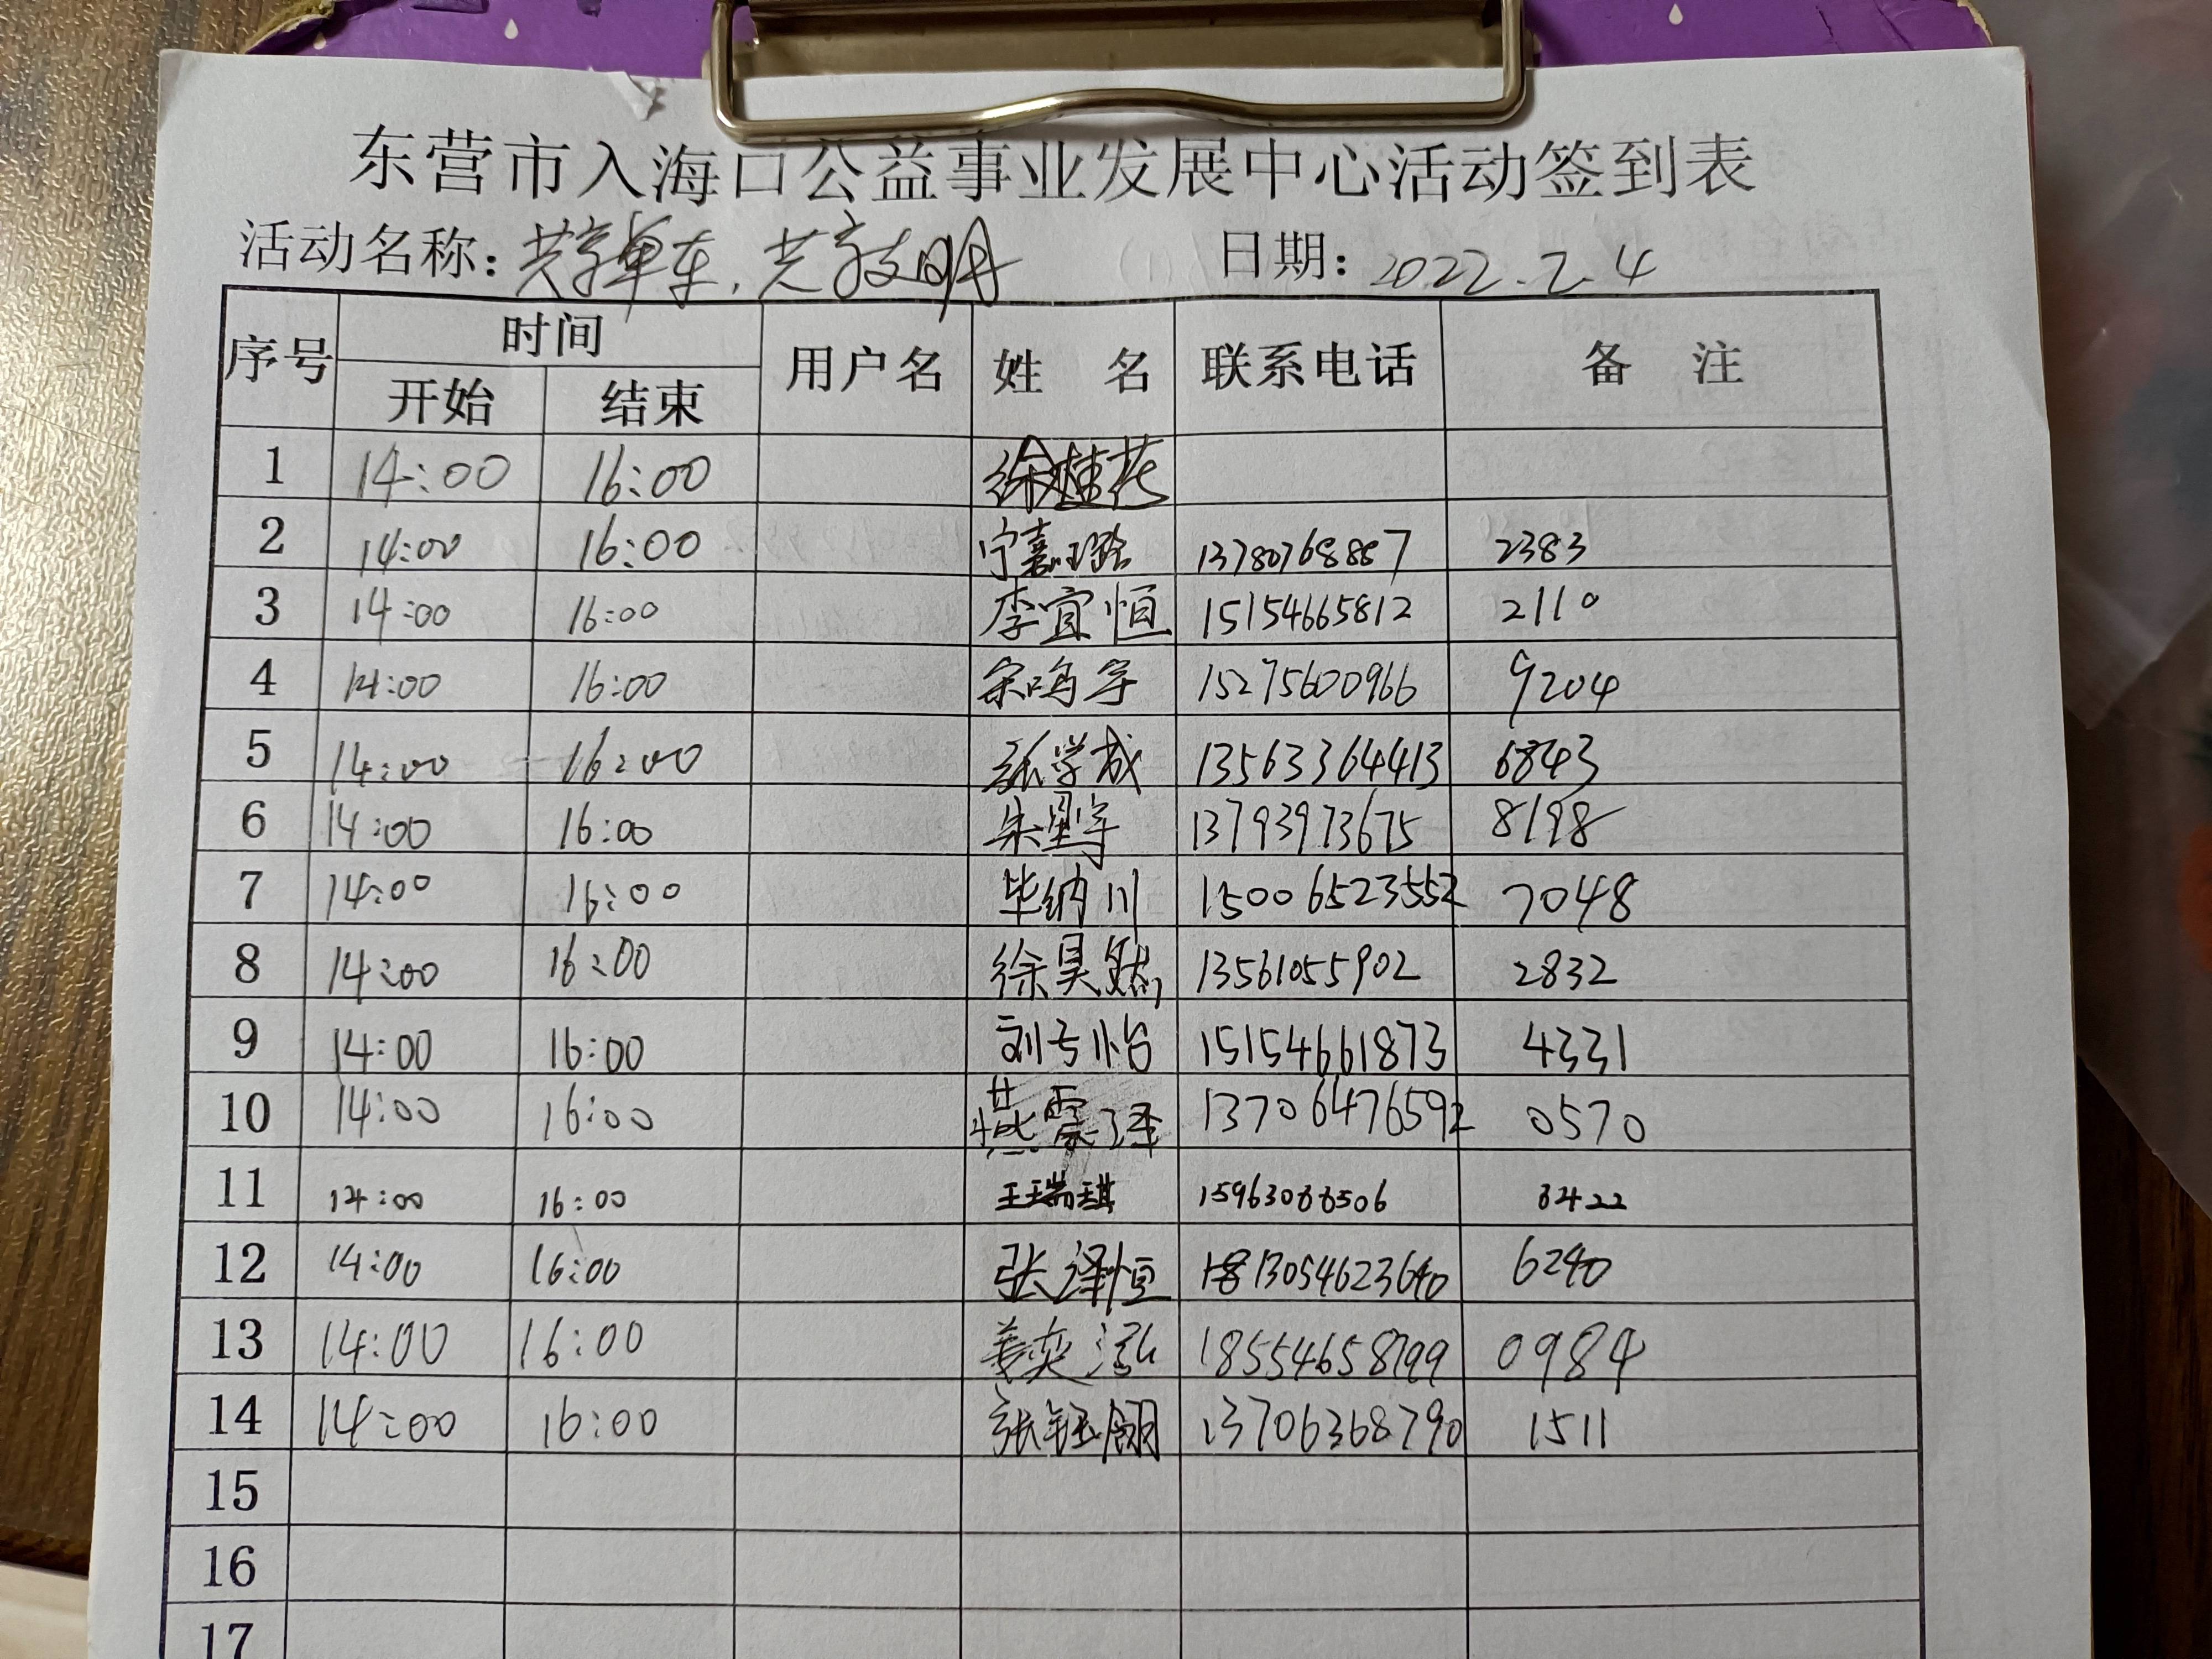 东营市入海口公益事业发展中心活动签到表
活动名称：共享单车，共享文明 日期：2022.2.4
序号 时间 用户名 姓 名 联系电话 备 注
开始 结束
1 14:00 16:00 徐桂花
2 14:00 16:00 宁嘉璐 13780768887 2383
3 14:00 16:00 李宜恒 15154665812 2110
4 14:00 16:00 宋鸣宇 15275600966 9204
5 14:00 16:00 张学成 13563364413 6843
6 14:00 16:00 朱星宇 13793973675 8198
7 14:00 16:00 毕纳川 15006523552 7048
8 14:00 16:00 徐昊然 13561055902 2832
9 14:00 16:00 刘子怡 15154661873 4331
10 14:00 16:00 燕震泽 13706476592 0570
11 14:00 16:00 王瑞琪
12 14:00 16:00 张泽恒 13054623640 6240
13 14:00 16:00 姜奕泓 18554658799 0984
14 14:00 16:00 张钰翎 13706368790 1511
15
16
17